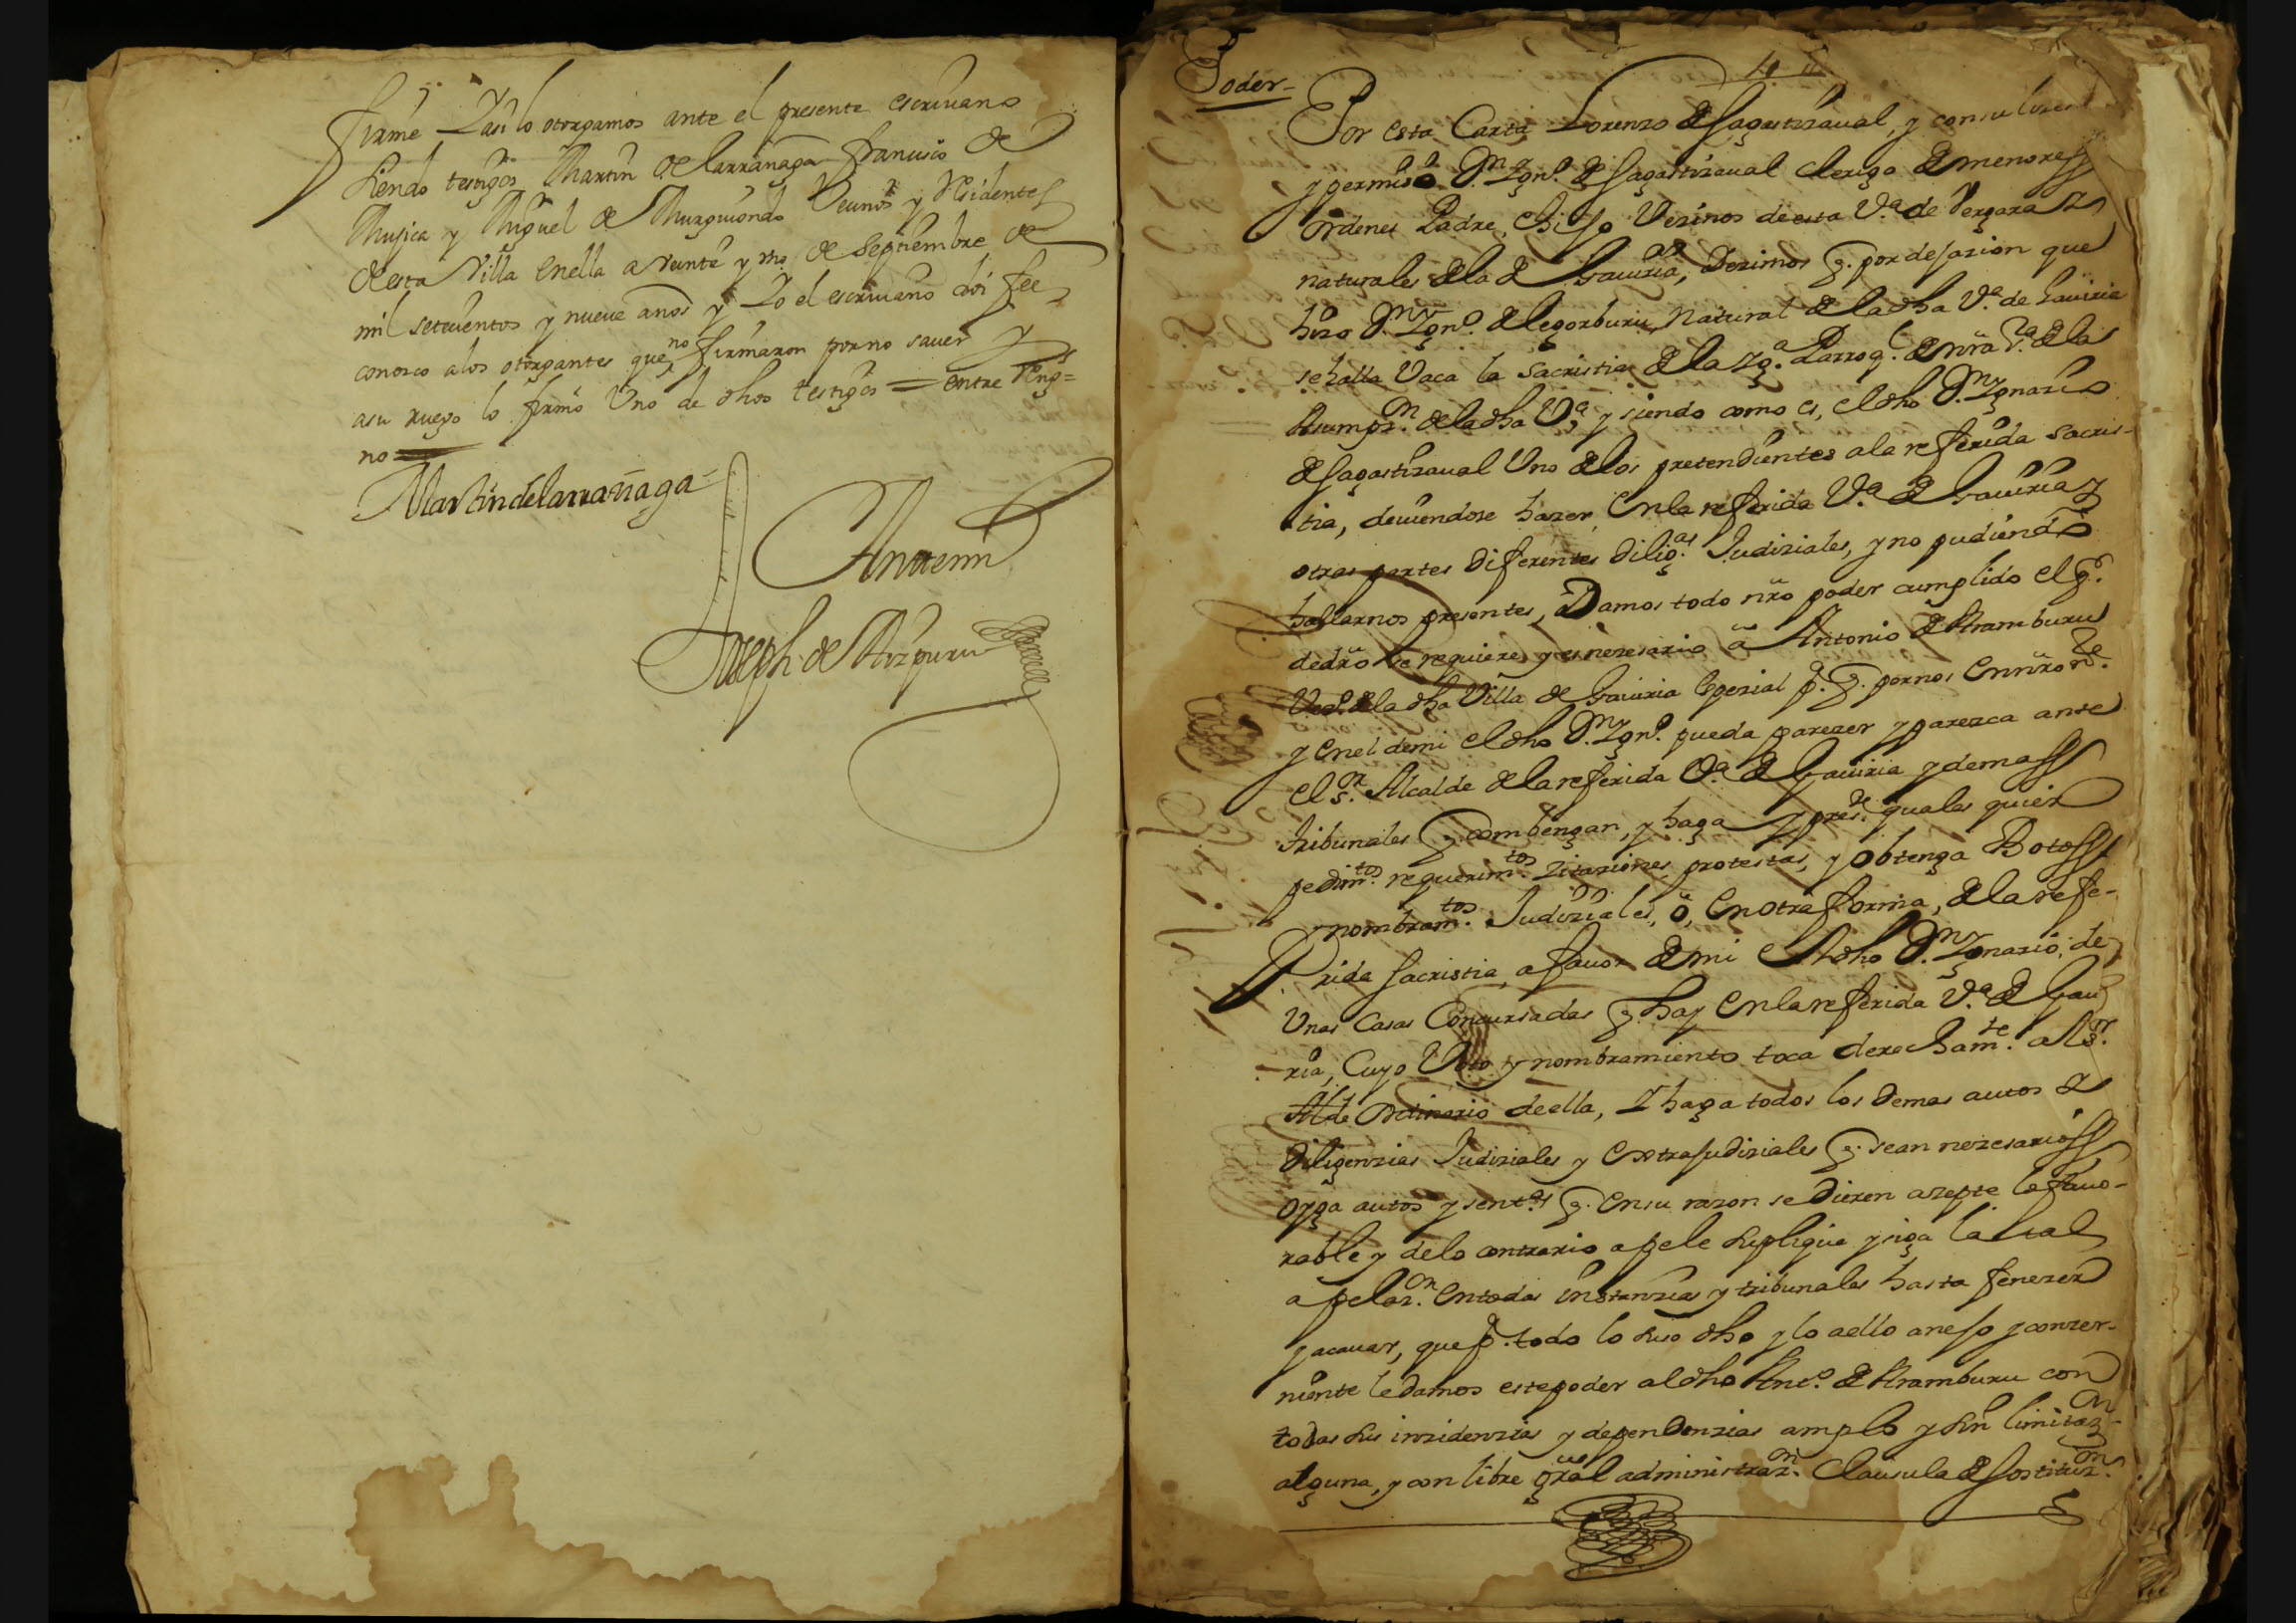 firme Y asi lo otorgamos ante el presente escriuano
siendo testigos Martin de Larrañaga francisco de
Mujica y Miguel de Murguiondo Vecinos y Residentes
desta Villa en ella a Veinte y vno de Septiembre de
mil setecientos y nueve años y Yo el escriuano doi fee
conozco a los otorgantes que no firmaron por no sauer y
a su ruego lo firmó Uno de dhos testigos = entre Reng=
no =
Martin de larrañaga
Antemi
Joseph de Aizpuru
Poder =
Por esta Carta Lorenzo de sagastizaual, y con su lizen
y permiso Dn Ygn.º de sagastizaual clerigo de menores
ordenes Padre, e hijo Vezinos de esta V.ª de Vergara y
naturales de la de Gauiria, Dezimos q. por dejazion que
hizo Dn Ygn.º de legorburu, natural de la dha V.ª de Gauiria
se halla Vaca la sacristia de la Yg.ª Parroq.l de nrã s.ra de la
Asumpz.n de la dha V.ª y siendo como es, el dho Dn Ygnazio
de sagastizaual Uno de los pretendientes a la referida sacris-
tia, deuiendose hazer, en la referida V.ª de Gauiria y
otras partes diferentes dilig.as Judiziales, y no pudiendo
hallarnos presentes, Damos todo nrõ poder cumplido el q.
de drõ se requiere y es nezesario a Antonio de Aramburu
Vez.º de la dha Villa de Gauiria espezial p.ª q. por nos en nrõ n.re
y en el de mi el dho Dn Ygn.º pueda parezer y parezca ante
el s.or Alcalde de la referida V.ª de Gauiria y demas
tribunales q. combengan, y haga y pres.te quales quier
pedim.tos requerim.tos zitaziones, protestas, y obtenga Botos
nombram.tos Judiziales, ó, en otra forma, de la refe-
rida sacristia, a fauor de mi el dho Dn Ygnazio, de
Unas Casas Concursadas q. hay en la referida V.ª de Gaui
ria, Cuyo Voto y nombramiento toca derecham.te al s.or
Alde Ordinario de ella, Y haga todos los demas autos y
diligenzias Judiziales y extrajudiziales q. sean nezesarios
oyga autos y sent.as q. en su razon se dieren azepte lo fauo-
rable y de lo contrario apele suplique y siga la tal
apelaz.on en todas instanzias y tribunales hasta fenezer
y acauar, que p.ª todo lo suso dho y lo a ello anejo y conzer-
niente le damos este poder al dho Ant.º de Aramburu con
todas sus inzidenzias y dependenzias amplo y sin limitaz.on
alguna, y con libre y grãl administraz.on Clausula de sostituz.on